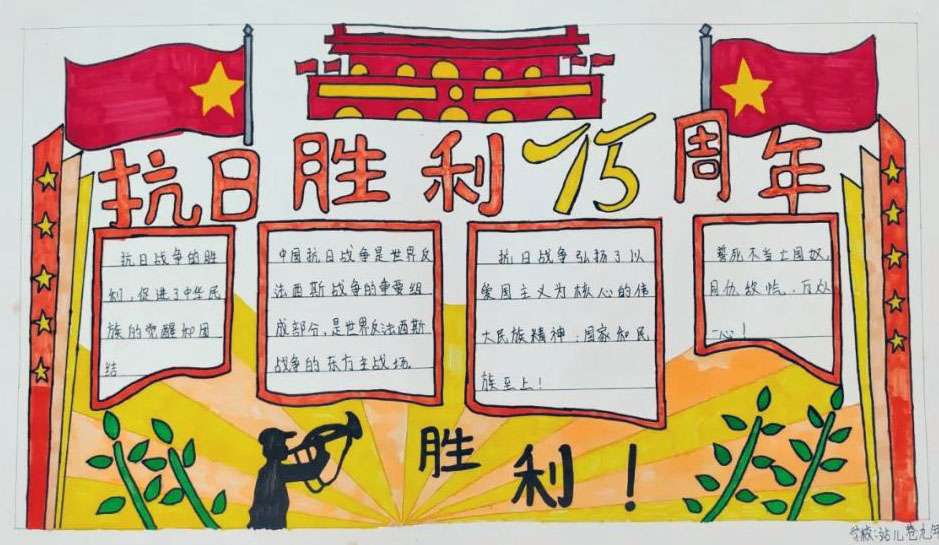 抗日胜利75周年
抗日战争的胜
利,促进了中华民
族的觉醒和团
结
中国抗日战争是世界反
法西斯战争的重要组
成部分,是世界反法西斯
战争的东方主战场
抗日战争弘扬了以
爱国主义为核心的伟
大民族精神:国家和民
族至上!
誓死不当亡国奴,
同仇敌忾,万众
一心!
胜
利!
学校:站儿巷九年